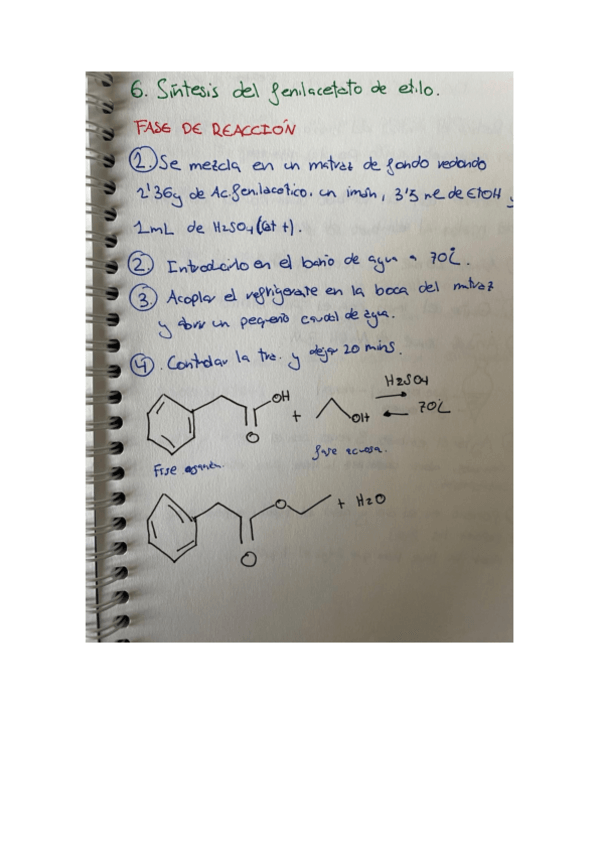 6. Síntesis del fenilacetato de etilo.
FASE DE REACCIÓN
1. Se mezcla en un matraz de fondo redondo
2'36g de Ac. fenilacético, un imán, 3'5 mL de EtOH y
1mL de H2SO4 (cat +).
2. Introducirlo en el baño de agua a 70ºC.
3. Acoplar el refrigerante en la boca del matraz
y abrir un pequeño caudal de agua.
4. Controlar la tra. y dejar 20 mins.
OH
O
+
OH
H2SO4
70ºC
Fase acuosa.
Fase
O
O
+ H2O